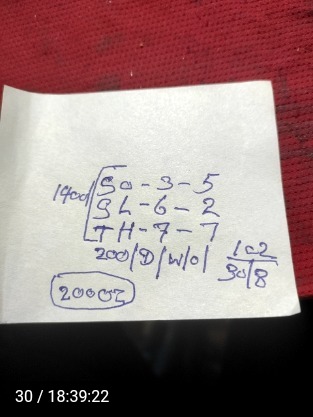 1400 SO-3-5
SL-6-2
TH-7-7
200/D/W/O/ 102
30/8
200OZ
30 / 18:39:22